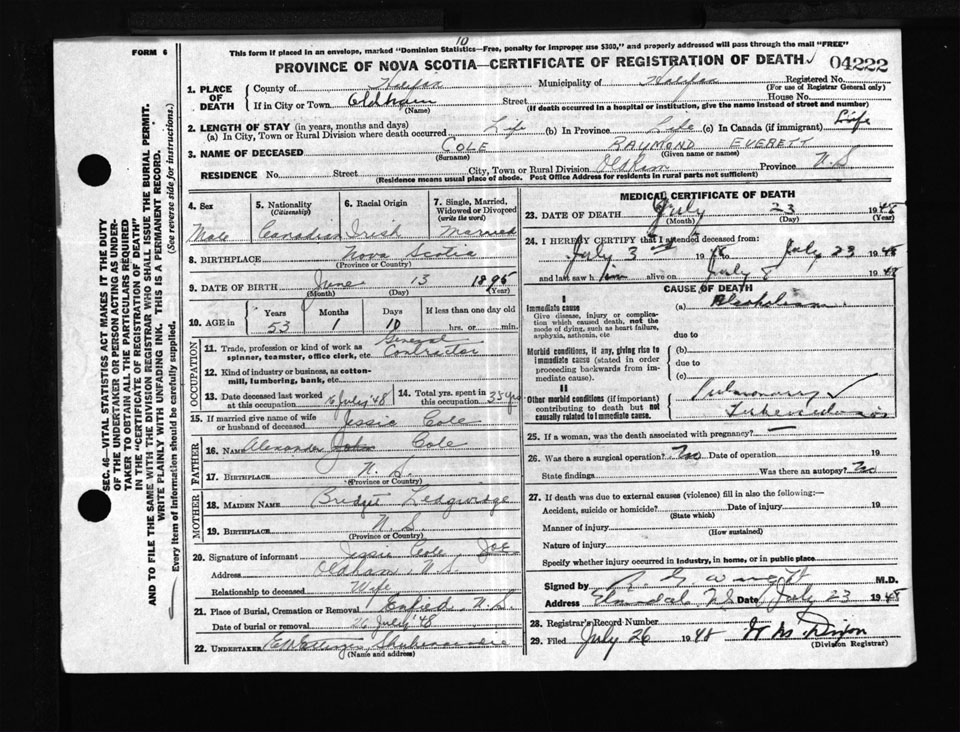 FORM 6
10
This form if placed in an envelope, marked "Dominion Statistics—Free, penalty for improper use $300," and properly addressed will pass through the mail "FREE"
PROVINCE OF NOVA SCOTIA—CERTIFICATE OF REGISTRATION OF DEATH
04222
1. PLACE OF DEATH County of Halifax Municipality of Halifax Registered No.
(For use of Registrar General only)
If in City or Town Oldham Street House No.
(Name) (If death occurred in a hospital or institution, give the name instead of street and number)
2. LENGTH OF STAY (in years, months and days)
(a) In City, Town or Rural Division where death occurred Life (b) In Province Life (c) In Canada (if immigrant) Life
3. NAME OF DECEASED COLE RAYMOND EVERETT
(Surname) (Given name or names)
RESIDENCE No. Street City, Town or Rural Division Oldham Province N.S
(Residence means usual place of abode. Post Office Address for residents in rural parts not sufficient)
4. Sex 5. Nationality (Citizenship) 6. Racial Origin 7. Single, Married, Widowed or Divorced (write the word)
Male Canadian Irish Married
8. BIRTHPLACE Nova Scotia
(Province or Country)
9. DATE OF BIRTH June 13 1895
(Month) (Day) (Year)
10. AGE in Years Months Days If less than one day old
53 1 10 hrs. or min.
OCCUPATION
11. Trade, profession or kind of work as spinner, teamster, office clerk, etc. General Contractor
12. Kind of industry or business, as cotton-mill, lumbering, bank, etc.
13. Date deceased last worked at this occupation July '48 14. Total yrs. spent in this occupation 35 yrs
15. If married give name of wife or husband of deceased Jessie Cole
FATHER
16. Name Alexander John Cole
17. BIRTHPLACE N.S.
(Province or Country)
MOTHER
18. MAIDEN NAME Bridget Ledgwidge
19. BIRTHPLACE N.S.
(Province or Country)
20. Signature of informant Jessie Cole
Address Oldham N.S
Relationship to deceased Wife
21. Place of Burial, Cremation or Removal Enfield N.S.
Date of burial or removal 26 July '48
22. UNDERTAKER Shubenacadie
(Name and address)
MEDICAL CERTIFICATE OF DEATH
23. DATE OF DEATH July 23 1948
(Month) (Day) (Year)
24. I HEREBY CERTIFY that I attended deceased from:
July 3rd 1948 to July 23 1948
and last saw h im alive on July 8 1948
CAUSE OF DEATH
I
Immediate cause (a) Alcoholism
Give disease, injury or complication which caused death, not the mode of dying, such as heart failure, asphyxia, asthenia, etc
due to
Morbid conditions, if any, giving rise to immediate cause (stated in order proceeding backwards from immediate cause).
(b)
due to
(c)
II
Other morbid conditions (if important) contributing to death but not causally related to immediate cause.
Pulmonary Tuberculosis
25. If a woman, was the death associated with pregnancy? —
26. Was there a surgical operation? No Date of operation 19
State findings Was there an autopsy? No
27. If death was due to external causes (violence) fill in also the following:—
Accident, suicide or homicide? Date of injury 19
(State which)
Manner of injury
(How sustained)
Nature of injury
Specify whether injury occurred in industry, in home, or in public place
Signed by M.D.
Address Elmsdale NS Date July 23 1948
28. Registrar's Record Number
29. Filed July 26 1948
(Division Registrar)
SEC. 46—VITAL STATISTICS ACT MAKES IT THE DUTY
OF THE UNDERTAKER OR PERSON ACTING AS UNDERTAKER
TO OBTAIN ALL THE PARTICULARS REQUIRED
IN THE "CERTIFICATE OF REGISTRATION OF DEATH"
AND TO FILE THE SAME WITH THE DIVISION REGISTRAR WHO SHALL ISSUE THE BURIAL PERMIT.
WRITE PLAINLY WITH UNFADING INK. THIS IS A PERMANENT RECORD.
Every item of information should be carefully supplied. (See reverse side for instructions.)